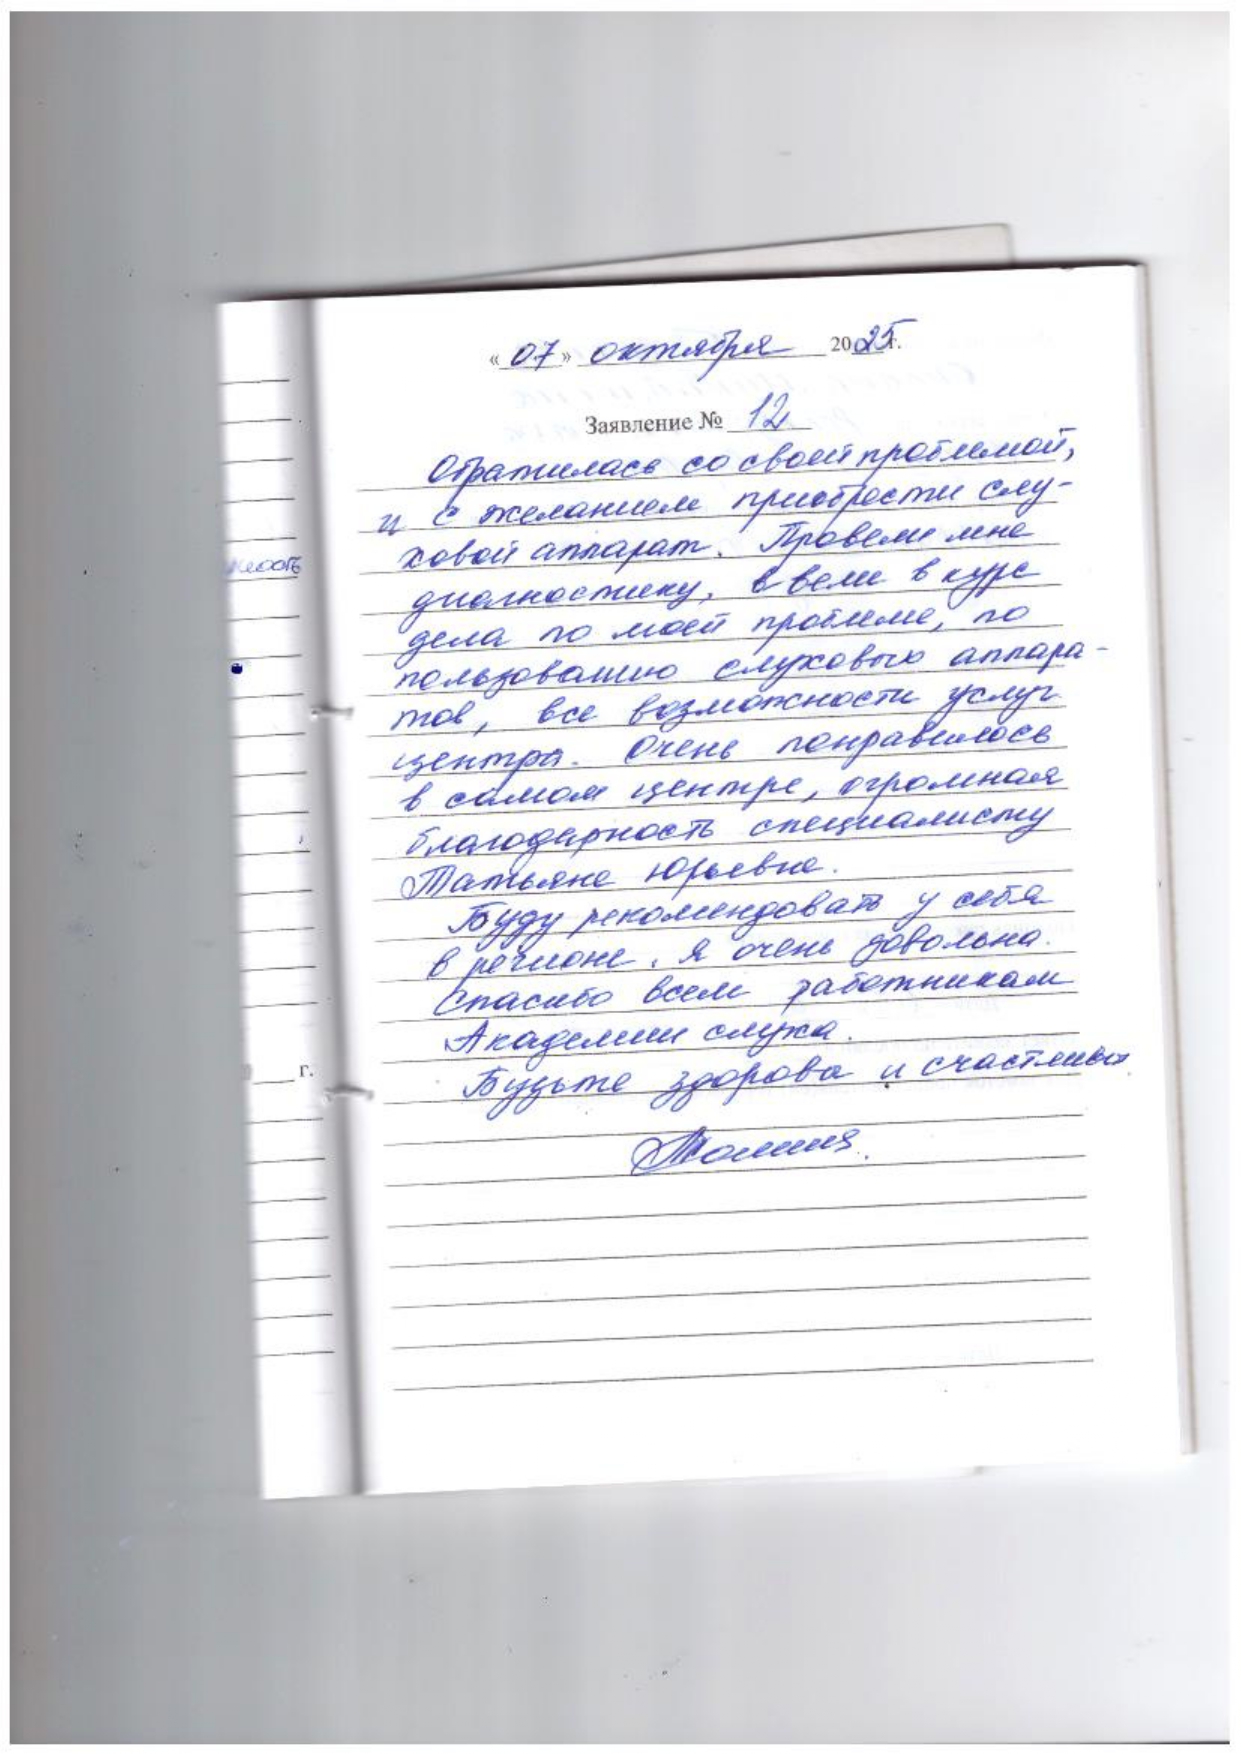 «07» октября 2025 г.
Заявление № 12
Обратилась со своей проблемой,
и с желанием приобрести слу-
ховой аппарат. Провели мне
диагностику, ввели в курс
дела по моей проблеме, по
пользованию слуховых аппара-
тов, все возможности услуг
центра. Очень понравилось
в самом центре, огромная
благодарность специалисту
Татьяне Юрьевне.
Буду рекомендовать у себя
в регионе. Я очень довольна.
Спасибо всем работникам
Академии слуха.
Будьте здорова и счастливы
г.